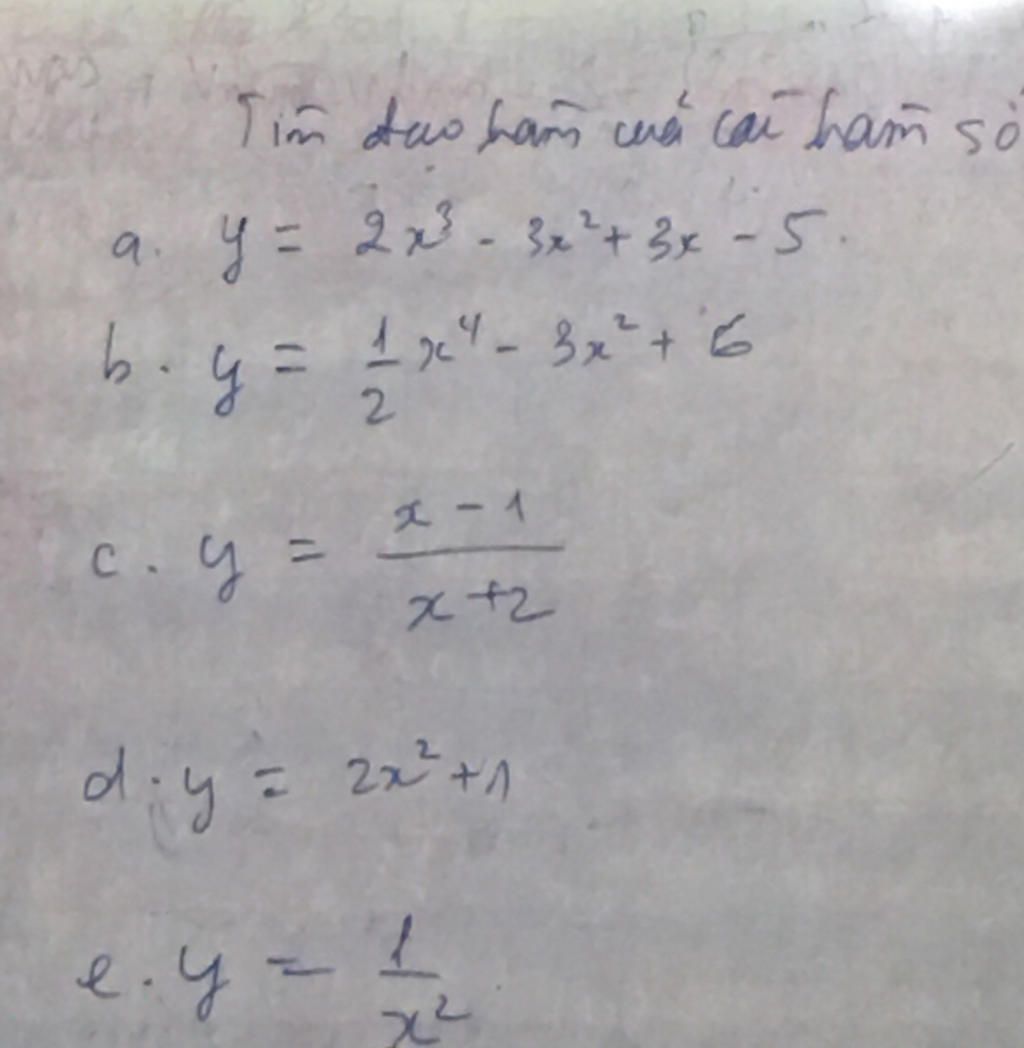 Tìm đạo hàm của các hàm số
a. y = 2x³ - 3x² + 3x - 5.
b. y = 1/2 x⁴ - 3x² + 6
c. y = (x - 1)/(x + 2)
d. y = 2x² + 1
e. y = 1/x²